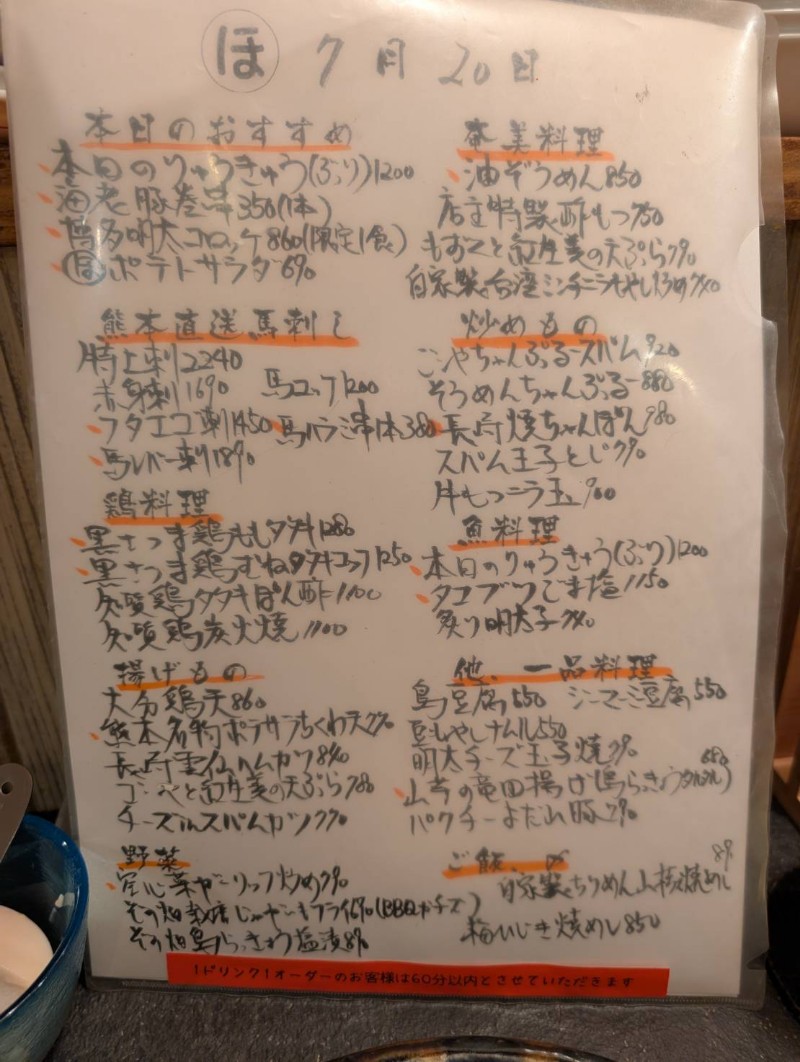 ほ 7月20日
本日のおすすめ
本日のりゅうきゅう(ぶり)1200
海老豚巻串350(1本)
博多明太コロッケ860(限定1食)
ポテトサラダ690
熊本直送馬刺し
特上刺2240
赤身刺1690 馬ユッケ1200
フタエゴ刺1450 馬ハラミ串1本380
馬レバー刺1890
鶏料理
黒さつま鶏ももタタキ1280
黒さつま鶏むねタタキユッケ1250
知覧鶏タタキぽん酢1100
知覧鶏炭火焼1100
揚げもの
大分鶏天860
熊本名物ポテサラちくわ天
長崎雲仙ハムカツ
ゴーヤと紅生姜の天ぷら780
チーズinスパムカツ770
野菜
空心菜ガーリック炒め790
じゃがいもフライ690(BBQorチーズ)
島らっきょう塩漬
奄美料理
油ぞうめん850
店主特製酢もつ750
もずくと紅生姜の天ぷら790
自家製台湾ミンチニラもやし炒め740
炒めもの
ごーやちゃんぷるースパム920
そうめんちゃんぷるー880
長崎焼ちゃんぽん980
スパム玉子とじ790
牛もつニラ玉900
魚料理
本日のりゅうきゅう(ぶり)1200
タコブツごま塩1150
炙り明太子740
他、一品料理
島豆腐550 ジーマーミ豆腐550
豆もやしナムル550
明太チーズ玉子焼790
山芋の竜田揚げ(島らっきょうタルタル)680
パクチーよだれ豚790
ご飯、〆
自家製ちりめん山椒焼めし
焼めし850
!ドリンク!オーダーのお客様は60分以内とさせていただきます